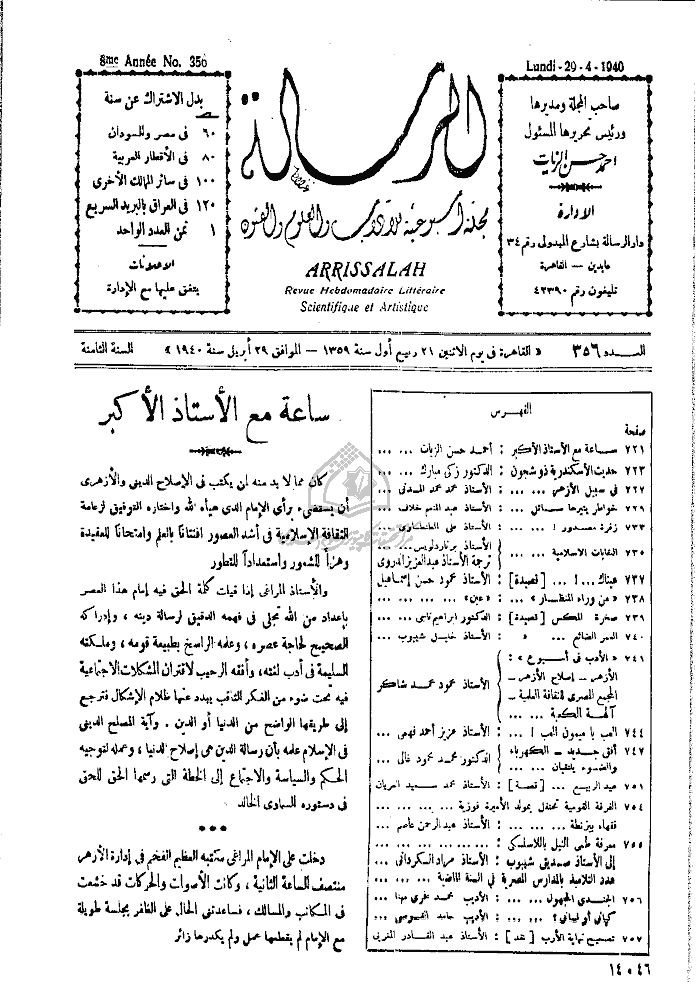 8me Année No. 356
Lundi - 29 - 4 - 1940
صاحب المجلة ومديرها
ورئيس تحريرها المسئول
احمد حسن الزيات
الادارة
دار الرسالة بشارع المبدولى رقم ٣٤
عابدين — القاهرة
تليفون رقم ٤٢٣٩٠
الرسالة
مجلة أسبوعية للآداب والعلوم والفنون
ARRISSALAH
Revue Hebdomadaire Littéraire
Scientifique et Artistique
بدل الاشتراك عن سنة
٦٠ فى مصر والسودان
٨٠ فى الأقطار العربية
١٠٠ فى سائر الممالك الأخرى
١٢٠ فى العراق بالبريد السريع
١ ثمن العدد الواحد
الاعلانات
يتفق عليها مع الإدارة
العـدد ٣٥٦
« القاهرة فى يوم الاثنين ٢١ ربيع أول سنة ١٣٥٩ — الموافق ٢٩ أبريل سنة ١٩٤٠ »
السنة الثامنة
الفهرس
صفحة
٧٢١ ساعة مع الأستاذ الأكبر : أحمد حسن الزيات ... ...
٧٢٣ حديث الأسكندرية ذو شجون : الدكتور زكى مبارك ... ...
٧٢٧ فى سبيل الأزهر ... ... : الأستاذ محمد محمد المدنى ...
٧٢٩ خواطر يثيرها سائل ... : الأستاذ عبد المنعم خلاف ...
٧٣٣ زفرة مصدور ! ... ... : الأستاذ على الطنطاوى ...
٧٣٥ النقابات الاسلامية ... : الأستاذ برنارد لويس ...
ترجمة الأستاذ عبد العزيز الدورى
٧٣٧ عيناك ... ! ... [ قصيدة ] : الأستاذ محمود حسن إسماعيل
٧٣٨ « من وراء المنظار » ... : « عين » ... ... ...
٧٣٩ صخرة المكس [ قصيدة ] : الدكتور ابراهيم ناجى ... ...
٧٤٠ العمر الضائع ... » : الأستاذ خليل شيبوب ...
٧٤١ « الأدب فى أسبوع » :
الأزهر — إصلاح الأزهر —
المجمع المصرى للثقافة العلمية —
... ...
الأستاذ محمود محمد شاكر
٧٤٤ العب يا ميمون العب ! ... : الأستاذ عزيز أحمد فهمى ...
٧٤٧ أفق جديد — الكهرباء
والضوء يلتقيان ... ...
الدكتور محمد محمود غالى ...
٧٥١ عيد الربيع ... [ قصة ] : الأستاذ محمد سعيد العريان
٧٥٤ الفرقة القومية تحتفل بمولد الأميرة فوزية ... ... ...
فقهاء بيزنطة ... ... : الأستاذ عبد الرحمن عاصم ...
٧٥٥ معرفة طمى النيل باللاسلكى ... ... ...
إلى الأستاذ صديق شيبوب : الأستاذ مراد السكردانى ...
عدد التلاميذ بالمدارس المصرية فى السنة الماضية ... ...
٧٥٦ الجندى المجهول ... ... : الأديب محمد فخرى ...
... ... : الأديب حامد ...
٧٥٧ تصحيح نهاية الأرب [ نقد ] : الأستاذ عبد القادر المغربى
١٤٠٤٦
ساعة مع الأستاذ الأكبر
كان مما لا بد منه لمن يكتب فى الإصلاح الدينى والأزهرى
أن يستضىء برأى الإمام الذى هيأه الله واختاره التوفيق لزعامة
الثقافة الإسلامية فى أشد العصور افتتانا بالعلم وامتحانا للعقيدة
وهزا للشعور واستعدادا للتطور
والأستاذ المراغى إذا قيلت كلمة الحق فيه إمام هذا العصر
بإعداد من الله تجلى فى فهمه الدقيق لرسالة دينه ، وإدراكه
الصحيح لحاجة عصره ، وعلمه الراسخ بطبيعة قومه ، وملكته
السليمة فى أدب لغته، وأفقه الرحيب لاقتران المشكلات الاجتماعية
فيه تحت ضوء من الفكر الثاقب يبدد عنها ظلام الإشكال فترجع
إلى طريقها الواضح من الدنيا أو الدين . وآية المصلح الدينى
فى الإسلام علمه بأن رسالة الدين هى إصلاح الدنيا ، وعمله لتوجيه
الحكم والسياسة والاجتماع إلى الخطة التى رسمها الحق للحق
فى دستوره السماوى الخالد
* * *
دخلت على الإمام المراغى مكتبه العظيم الفخم فى إدارة الأزهر
منتصف الساعة الثانية ، وكانت الأصوات والحركات قد خشعت
فى المكاتب والمسالك ، فساعدتنى الحال على الظفر بجلسة طويلة
مع الإمام لم يقطعها عمل ولم يكدرها زائر